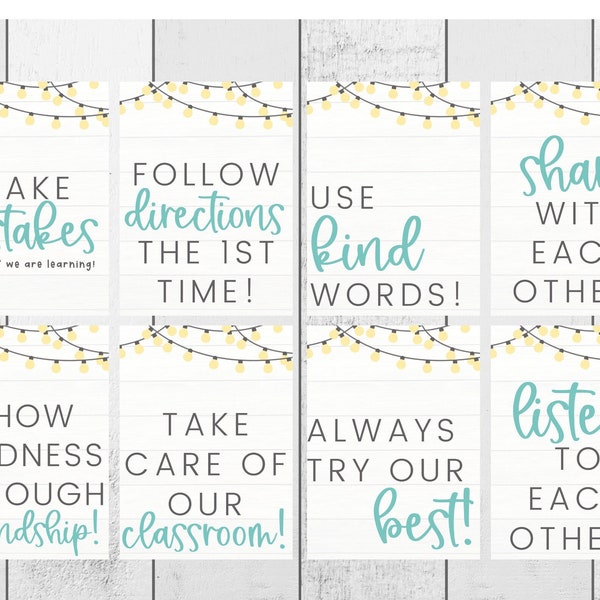 AKE
takes
we are learning!
FOLLOW
directions
THE 1ST
TIME!
USE
kind
WORDS!
shar
WIT
EAC
OTHE
HOW
DNESS
OUGH
ndship!
TAKE
CARE OF
OUR
classroom!
ALWAYS
TRY OUR
best!
liste
TO
EAC
OTHE